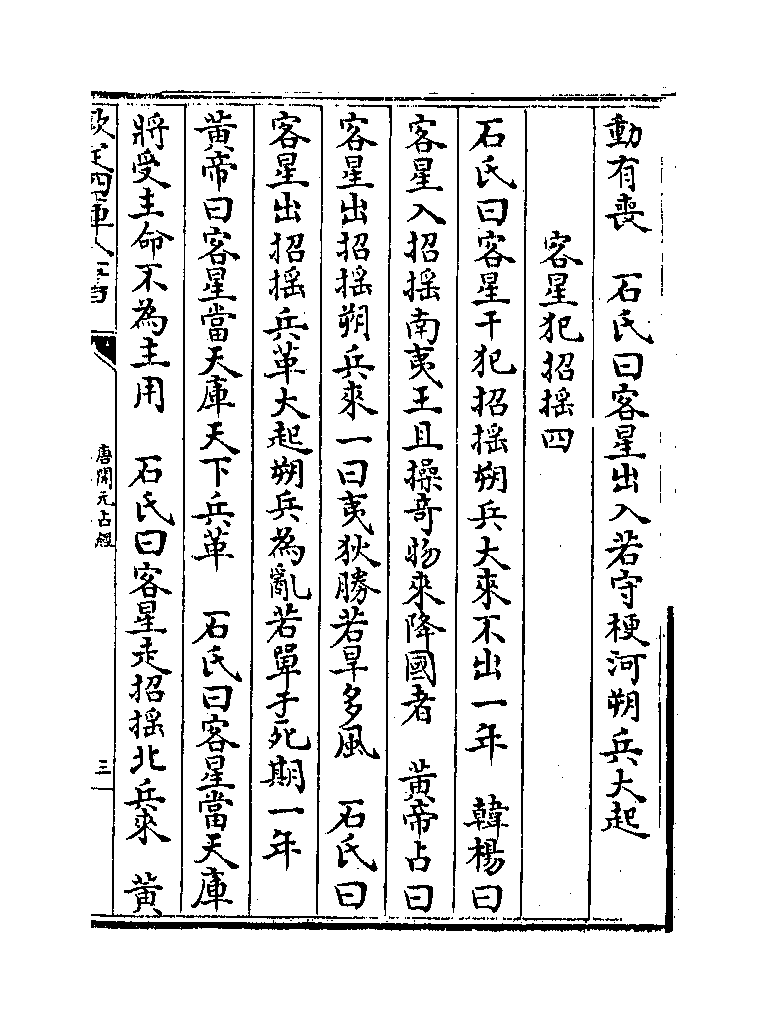 動有喪　石氏曰客星出入若守梗河朔兵大起
客星犯招搖四
石氏曰客星干犯招搖朔兵大來不出一年　韓楊曰
客星入招搖南夷王且操奇物來降國者　黃帝占曰
客星出招搖朔兵來一曰夷狄勝若旱多風　石氏曰
客星出招搖兵革大起朔兵為亂若單于死期一年
黃帝曰客星當天庫天下兵革　石氏曰客星當天庫
將受主命不為主用　石氏曰客星走招搖北兵來　黃
欽定四庫全書
唐開元占經
三